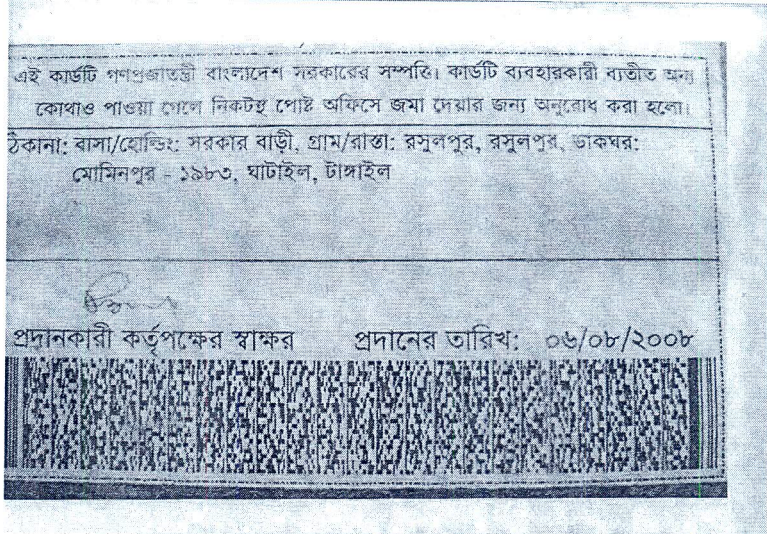 এই কার্ডটি গণপ্রজাতন্ত্রী বাংলাদেশ সরকারের সম্পত্তি। কার্ডটি ব্যবহারকারী ব্যতীত অন্য
কোথাও পাওয়া গেলে নিকটস্থ পোষ্ট অফিসে জমা দেয়ার জন্য অনুরোধ করা হলো।
ঠিকানা: বাসা/হোল্ডিং: সরকার বাড়ী, গ্রাম/রাস্তা: রসুলপুর, রসুলপুর, ডাকঘর:
মোমিনপুর - ১৯৮৩, ঘাটাইল, টাঙ্গাইল
প্রদানকারী কর্তৃপক্ষের স্বাক্ষর প্রদানের তারিখ: ০৬/০৮/২০০৮